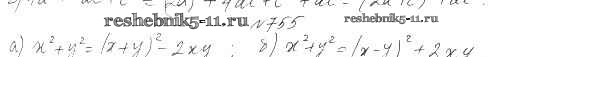 reshebnik5-11.ru №755 reshebnik5-11.ru
а) x²+y²=(x+y)²-2xy ; б) x²+y²=(x-y)²+2xy